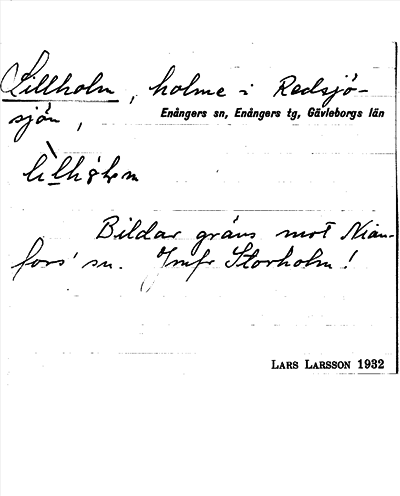 Lillholm, holme i Redsjö-
sjön,
Enångers sn, Enångers tg, Gävleborgs län
Bildar gräns mot Nian-
fors' sn. Jmfr Storholm!
LARS LARSSON 1932